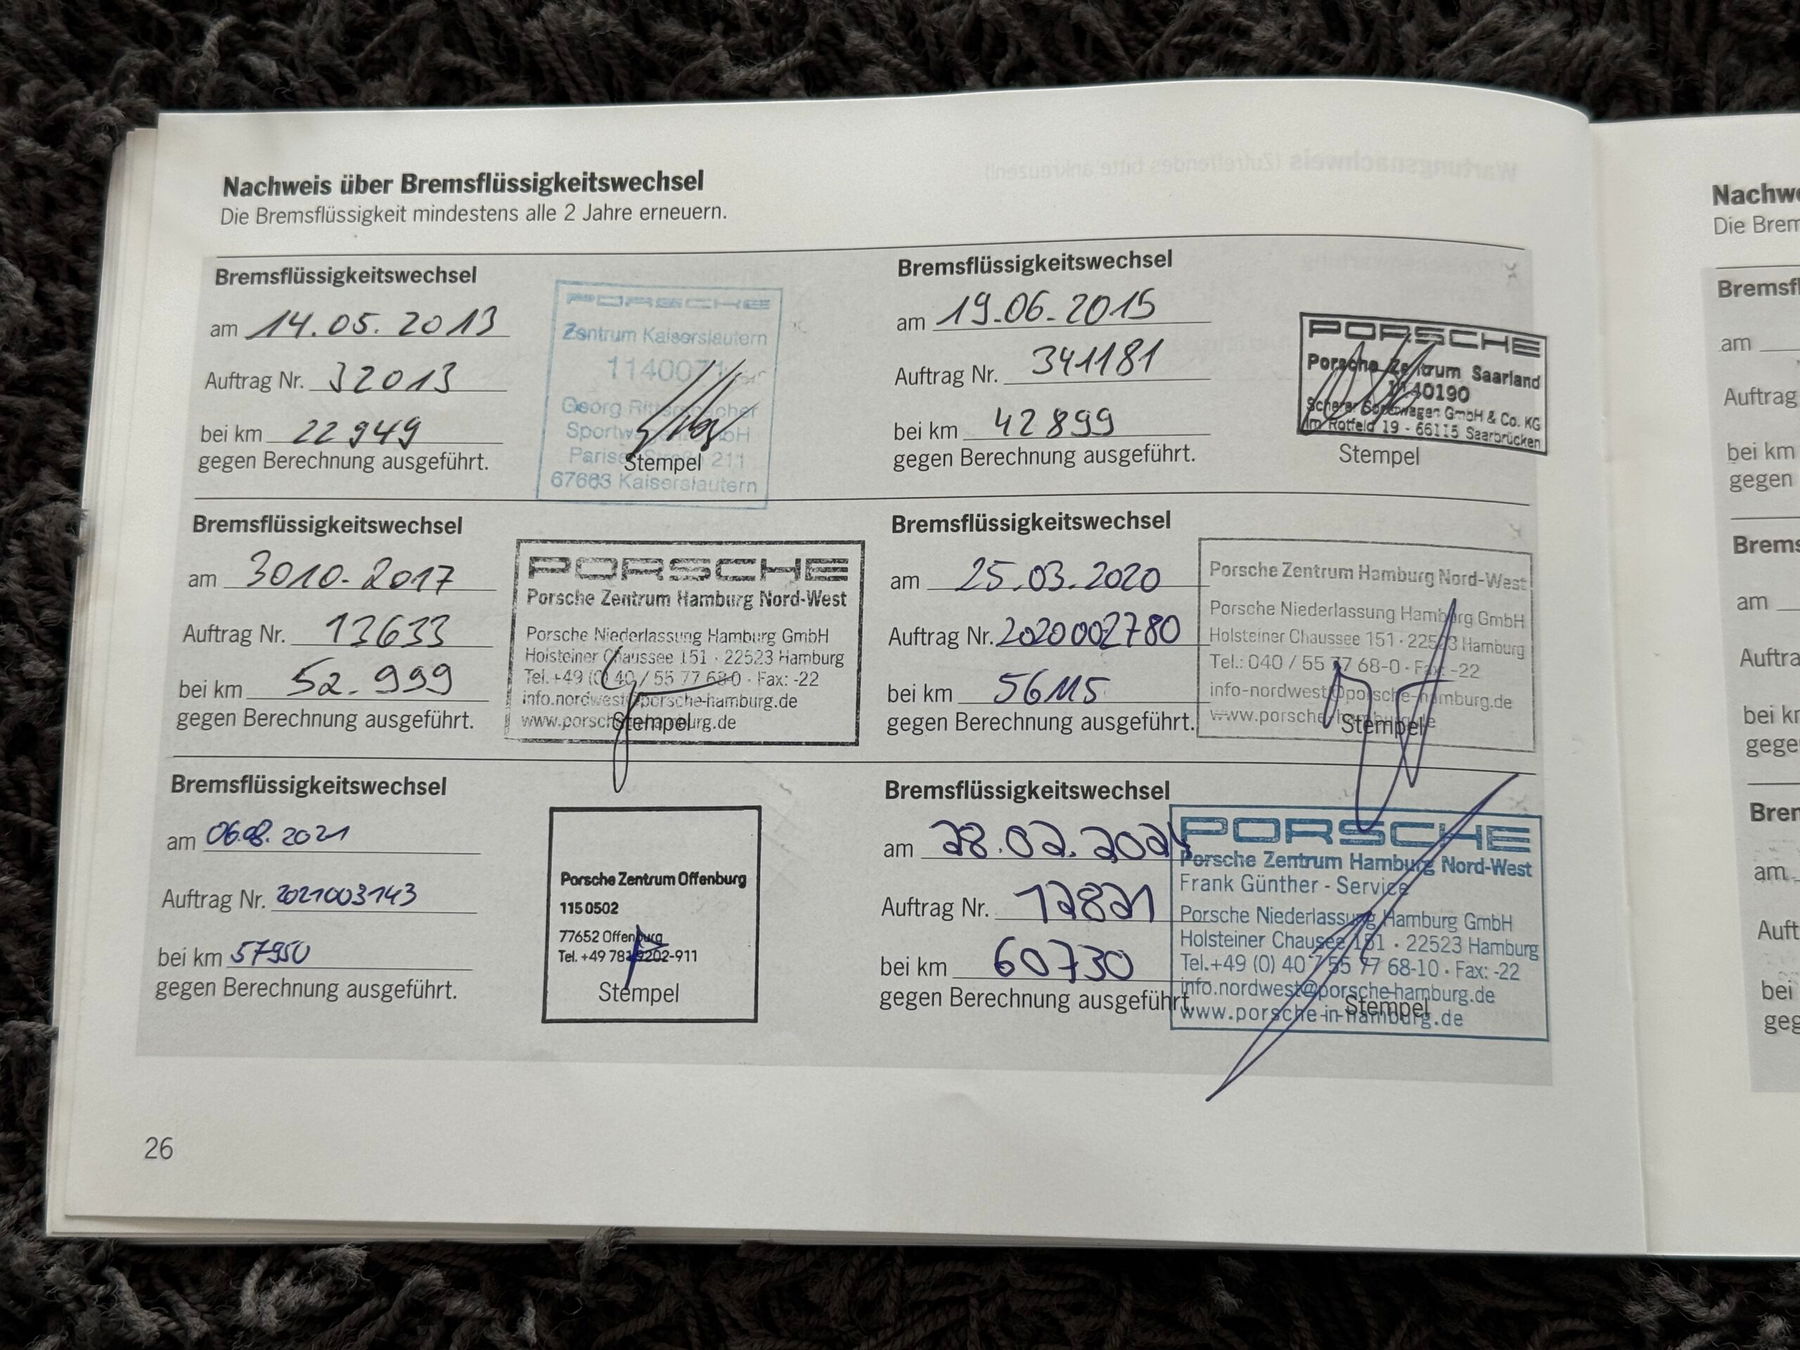 Nachweis über Bremsflüssigkeitswechsel
Die Bremsflüssigkeit mindestens alle 2 Jahre erneuern.
Bremsflüssigkeitswechsel
am 14.05.2013
Auftrag Nr. 32013
bei km 22949
gegen Berechnung ausgeführt.
PORSCHE
Zentrum Kaiserslautern
Georg
67663 Kaiserslautern
Stempel
Bremsflüssigkeitswechsel
am 19.06.2015
Auftrag Nr. 341181
bei km 42899
gegen Berechnung ausgeführt.
PORSCHE
Porsche Zentrum Saarland
1140190
Scherer Sportwagen GmbH & Co. KG
Im Rotfeld 19 - 66115 Saarbrücken
Stempel
Bremsflüssigkeitswechsel
am 3010.2017
Auftrag Nr. 13633
bei km 52.999
gegen Berechnung ausgeführt.
PORSCHE
Porsche Zentrum Hamburg Nord-West
Porsche Niederlassung Hamburg GmbH
Holsteiner Chaussee 151 · 22523 Hamburg
Tel. +49 (0) 40 / 55 77 68-0 · Fax: -22
info.nordwest@porsche-hamburg.de
www.porsche-hamburg.de
Stempel
Bremsflüssigkeitswechsel
am 25.03.2020
Auftrag Nr. 2020002780
bei km 56115
gegen Berechnung ausgeführt.
Porsche Zentrum Hamburg Nord-West
Porsche Niederlassung Hamburg GmbH
Holsteiner Chaussee 151 · 22523 Hamburg
Tel.: 040 / 55 77 68-0 · Fax: -22
info-nordwest@porsche-hamburg.de
www.porsche-hamburg.de
Stempel
Bremsflüssigkeitswechsel
am 06.08.2021
Auftrag Nr. 2021003143
bei km 57950
gegen Berechnung ausgeführt.
Porsche Zentrum Offenburg
115 0502
77652 Offenburg
Tel. +49 781 9202-911
Stempel
Bremsflüssigkeitswechsel
am 28.02.2024
Auftrag Nr. 12821
bei km 60730
gegen Berechnung ausgeführt.
PORSCHE
Porsche Zentrum Hamburg Nord-West
Frank Günther - Service
Porsche Niederlassung Hamburg GmbH
Holsteiner Chaussee 151 · 22523 Hamburg
Tel.+49 (0) 40 / 55 77 68-10 · Fax: -22
info.nordwest@porsche-hamburg.de
www.porsche-in-hamburg.de
Stempel
26
Die
am
Auftrag
bei km
gegen
am
bei